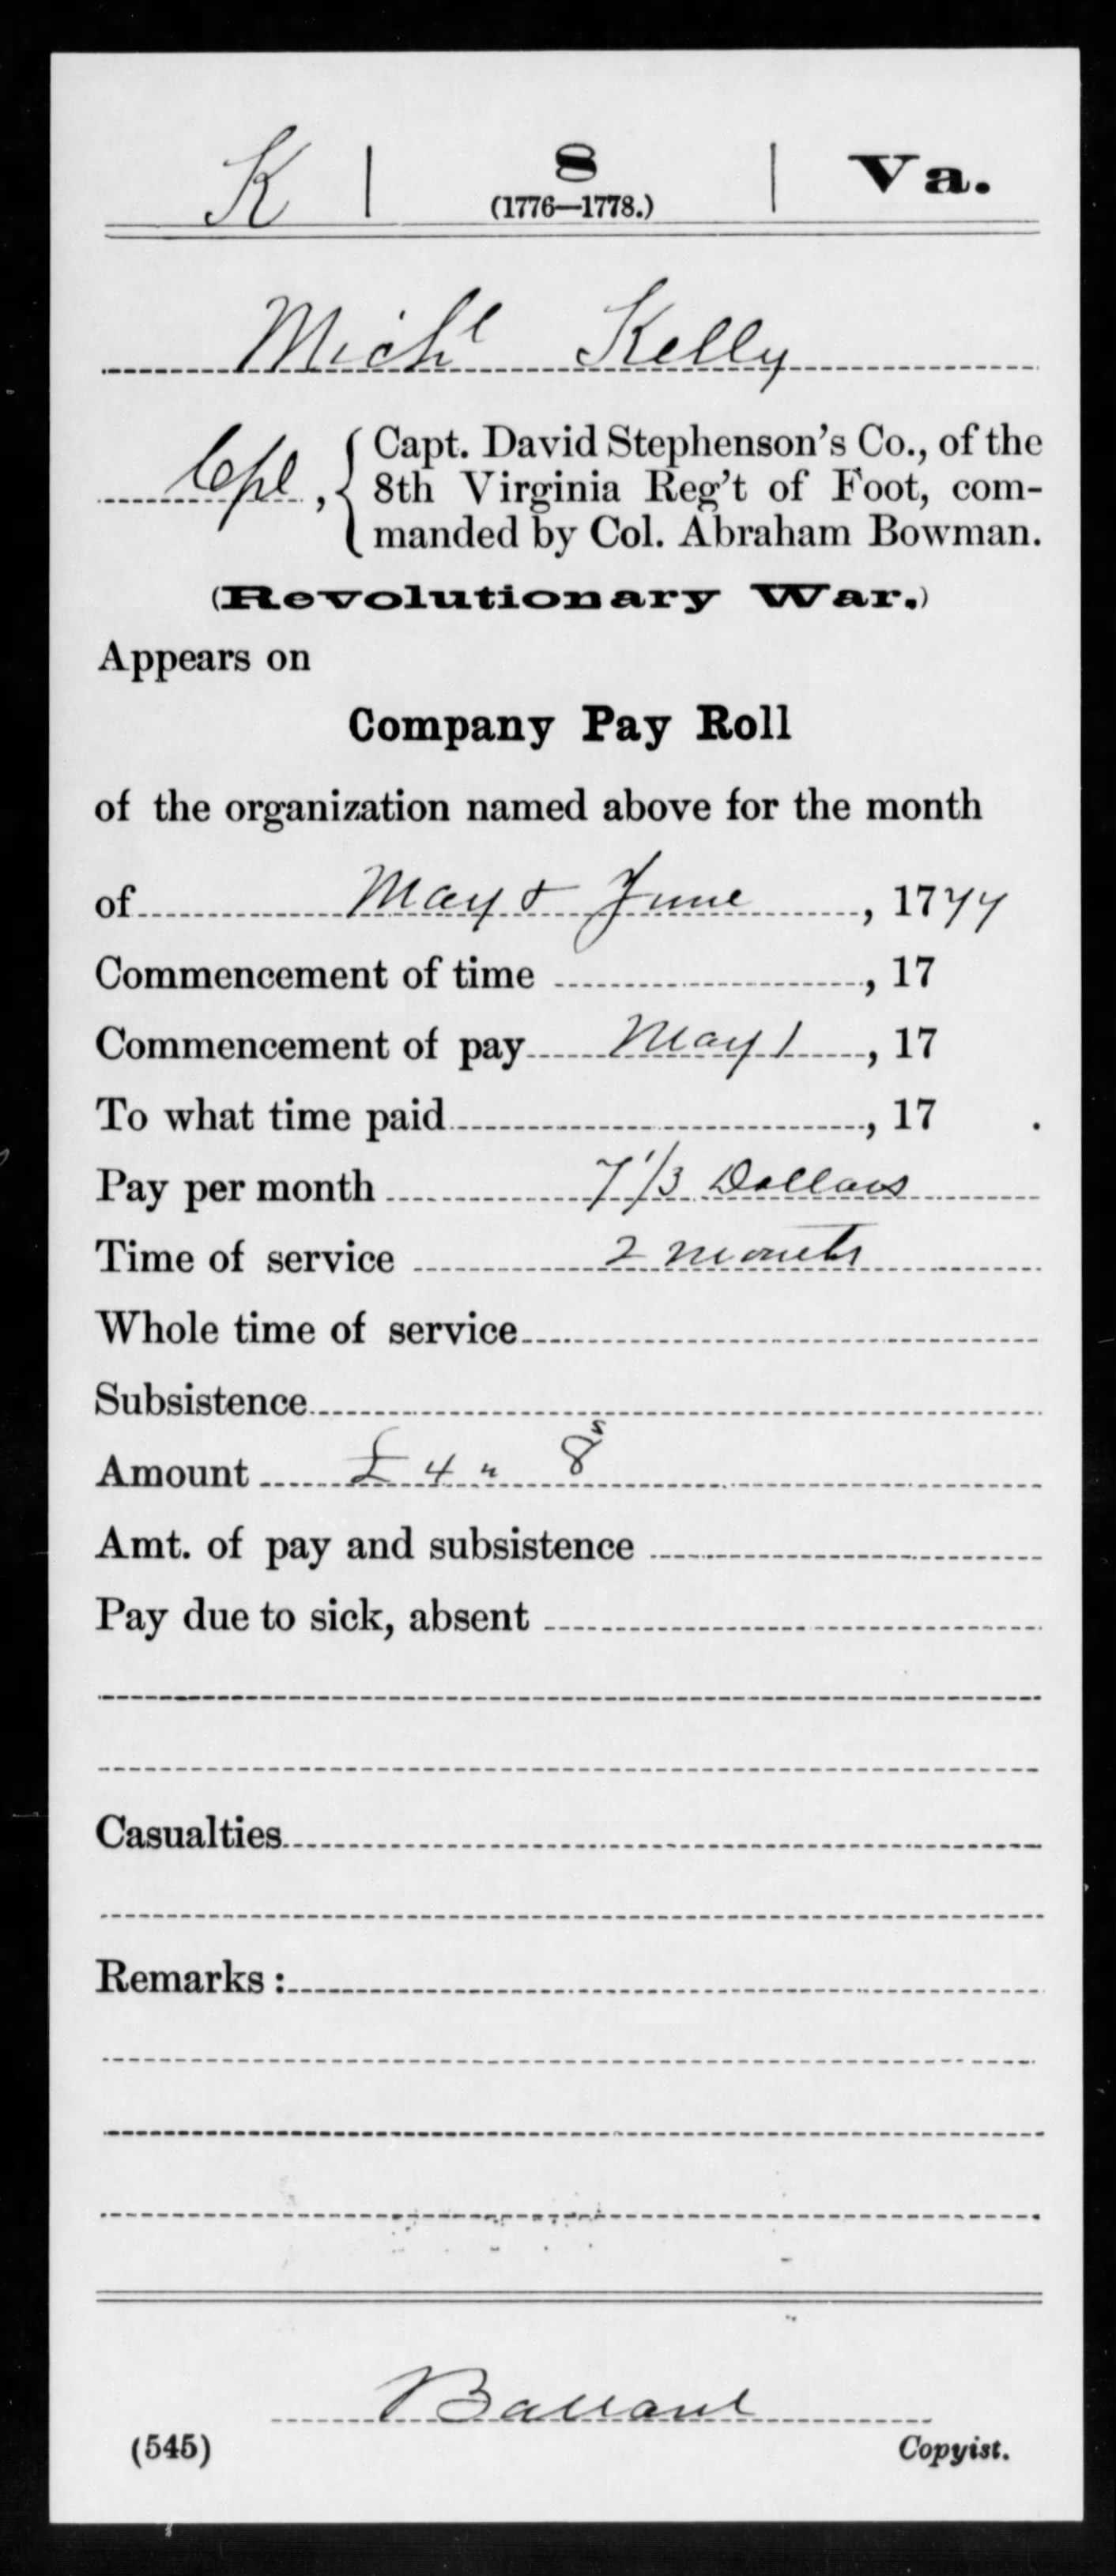 K | 8 | Va.
(1776—1778.)
Mich^l Kelly
Cpl, { Capt. David Stephenson's Co., of the
8th Virginia Reg't of Foot, com-
manded by Col. Abraham Bowman.
(Revolutionary War.)
Appears on
Company Pay Roll
of the organization named above for the month
of May & June, 1777
Commencement of time , 17
Commencement of pay May 1, 17
To what time paid , 17 .
Pay per month 7 1/3 Dollars
Time of service 2 months
Whole time of service
Subsistence
Amount £ 4 " 8^s
Amt. of pay and subsistence
Pay due to sick, absent
Casualties
Remarks :
(545) Copyist.